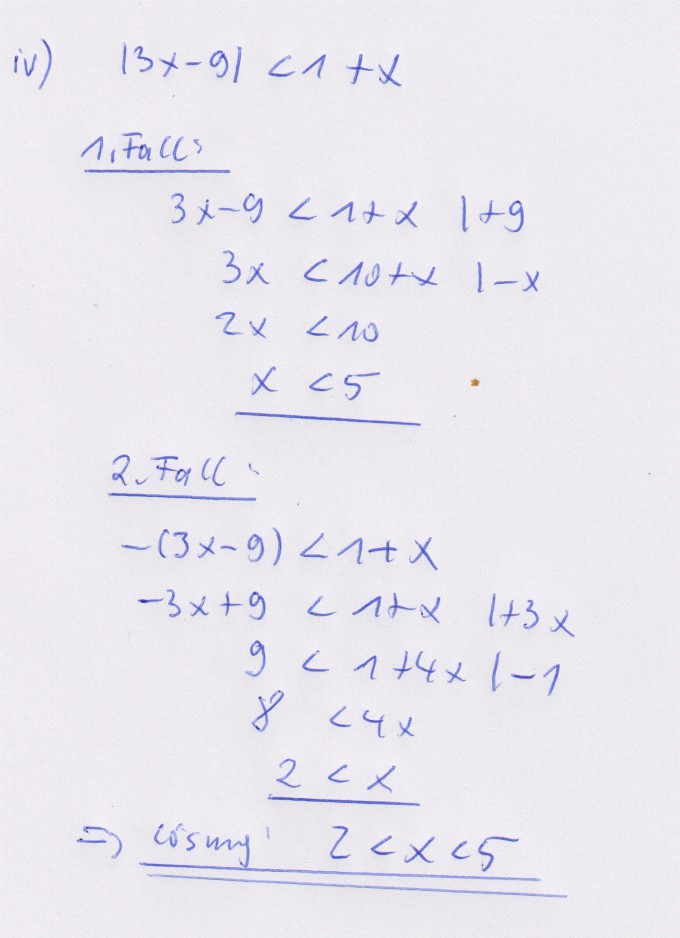 iv) |3x-9| < 1 + x
1. Fall:
3x-9 < 1+x |+9
3x < 10+x |-x
2x < 10
x < 5
2. Fall:
-(3x-9) < 1+x
-3x+9 < 1+x |+3x
9 < 1+4x |-1
8 < 4x
2 < x
=> Lösung: 2 < x < 5